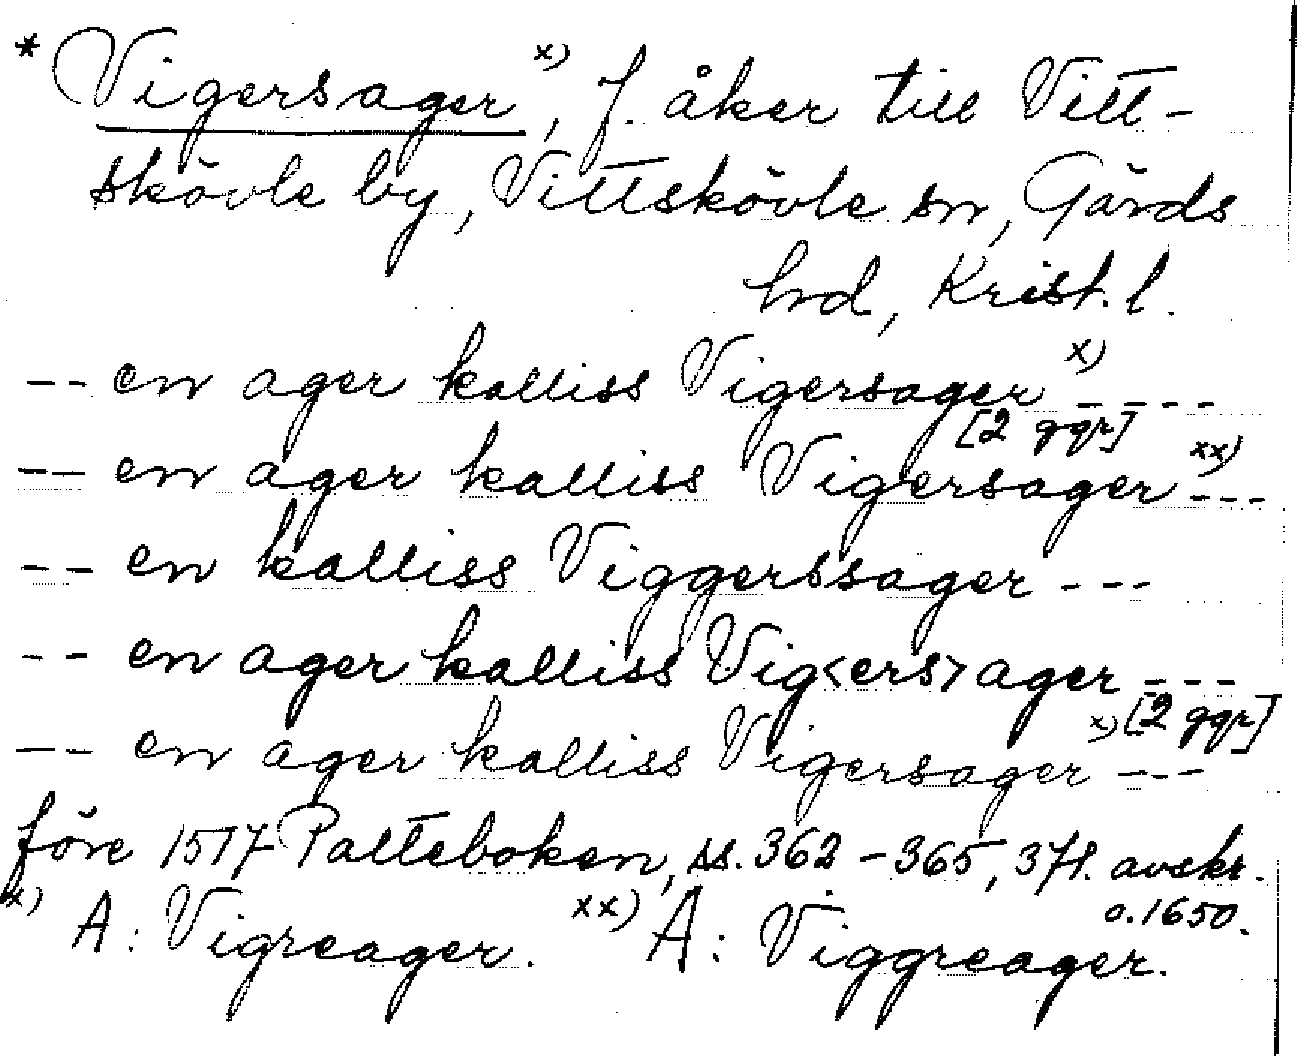 * Vigersager x), f. åker till Vitt-
skövle by, Vittskövle sn, Gärds
hrd, Krist. l.
-- en ager kalliss Vigersager x) ----
[2 ggr]
-- en ager kalliss Vigersager xx) ---
-- en kalliss Viggerssager ---
-- en ager kalliss Vig<ers>ager ---
-- en ager kalliss Vigersager x) [2 ggr] ---
före 1517 Palteboken, ss. 362-365, 371. avskr.
o. 1650.
x) A: Vigreager. xx) A: Viggreager.